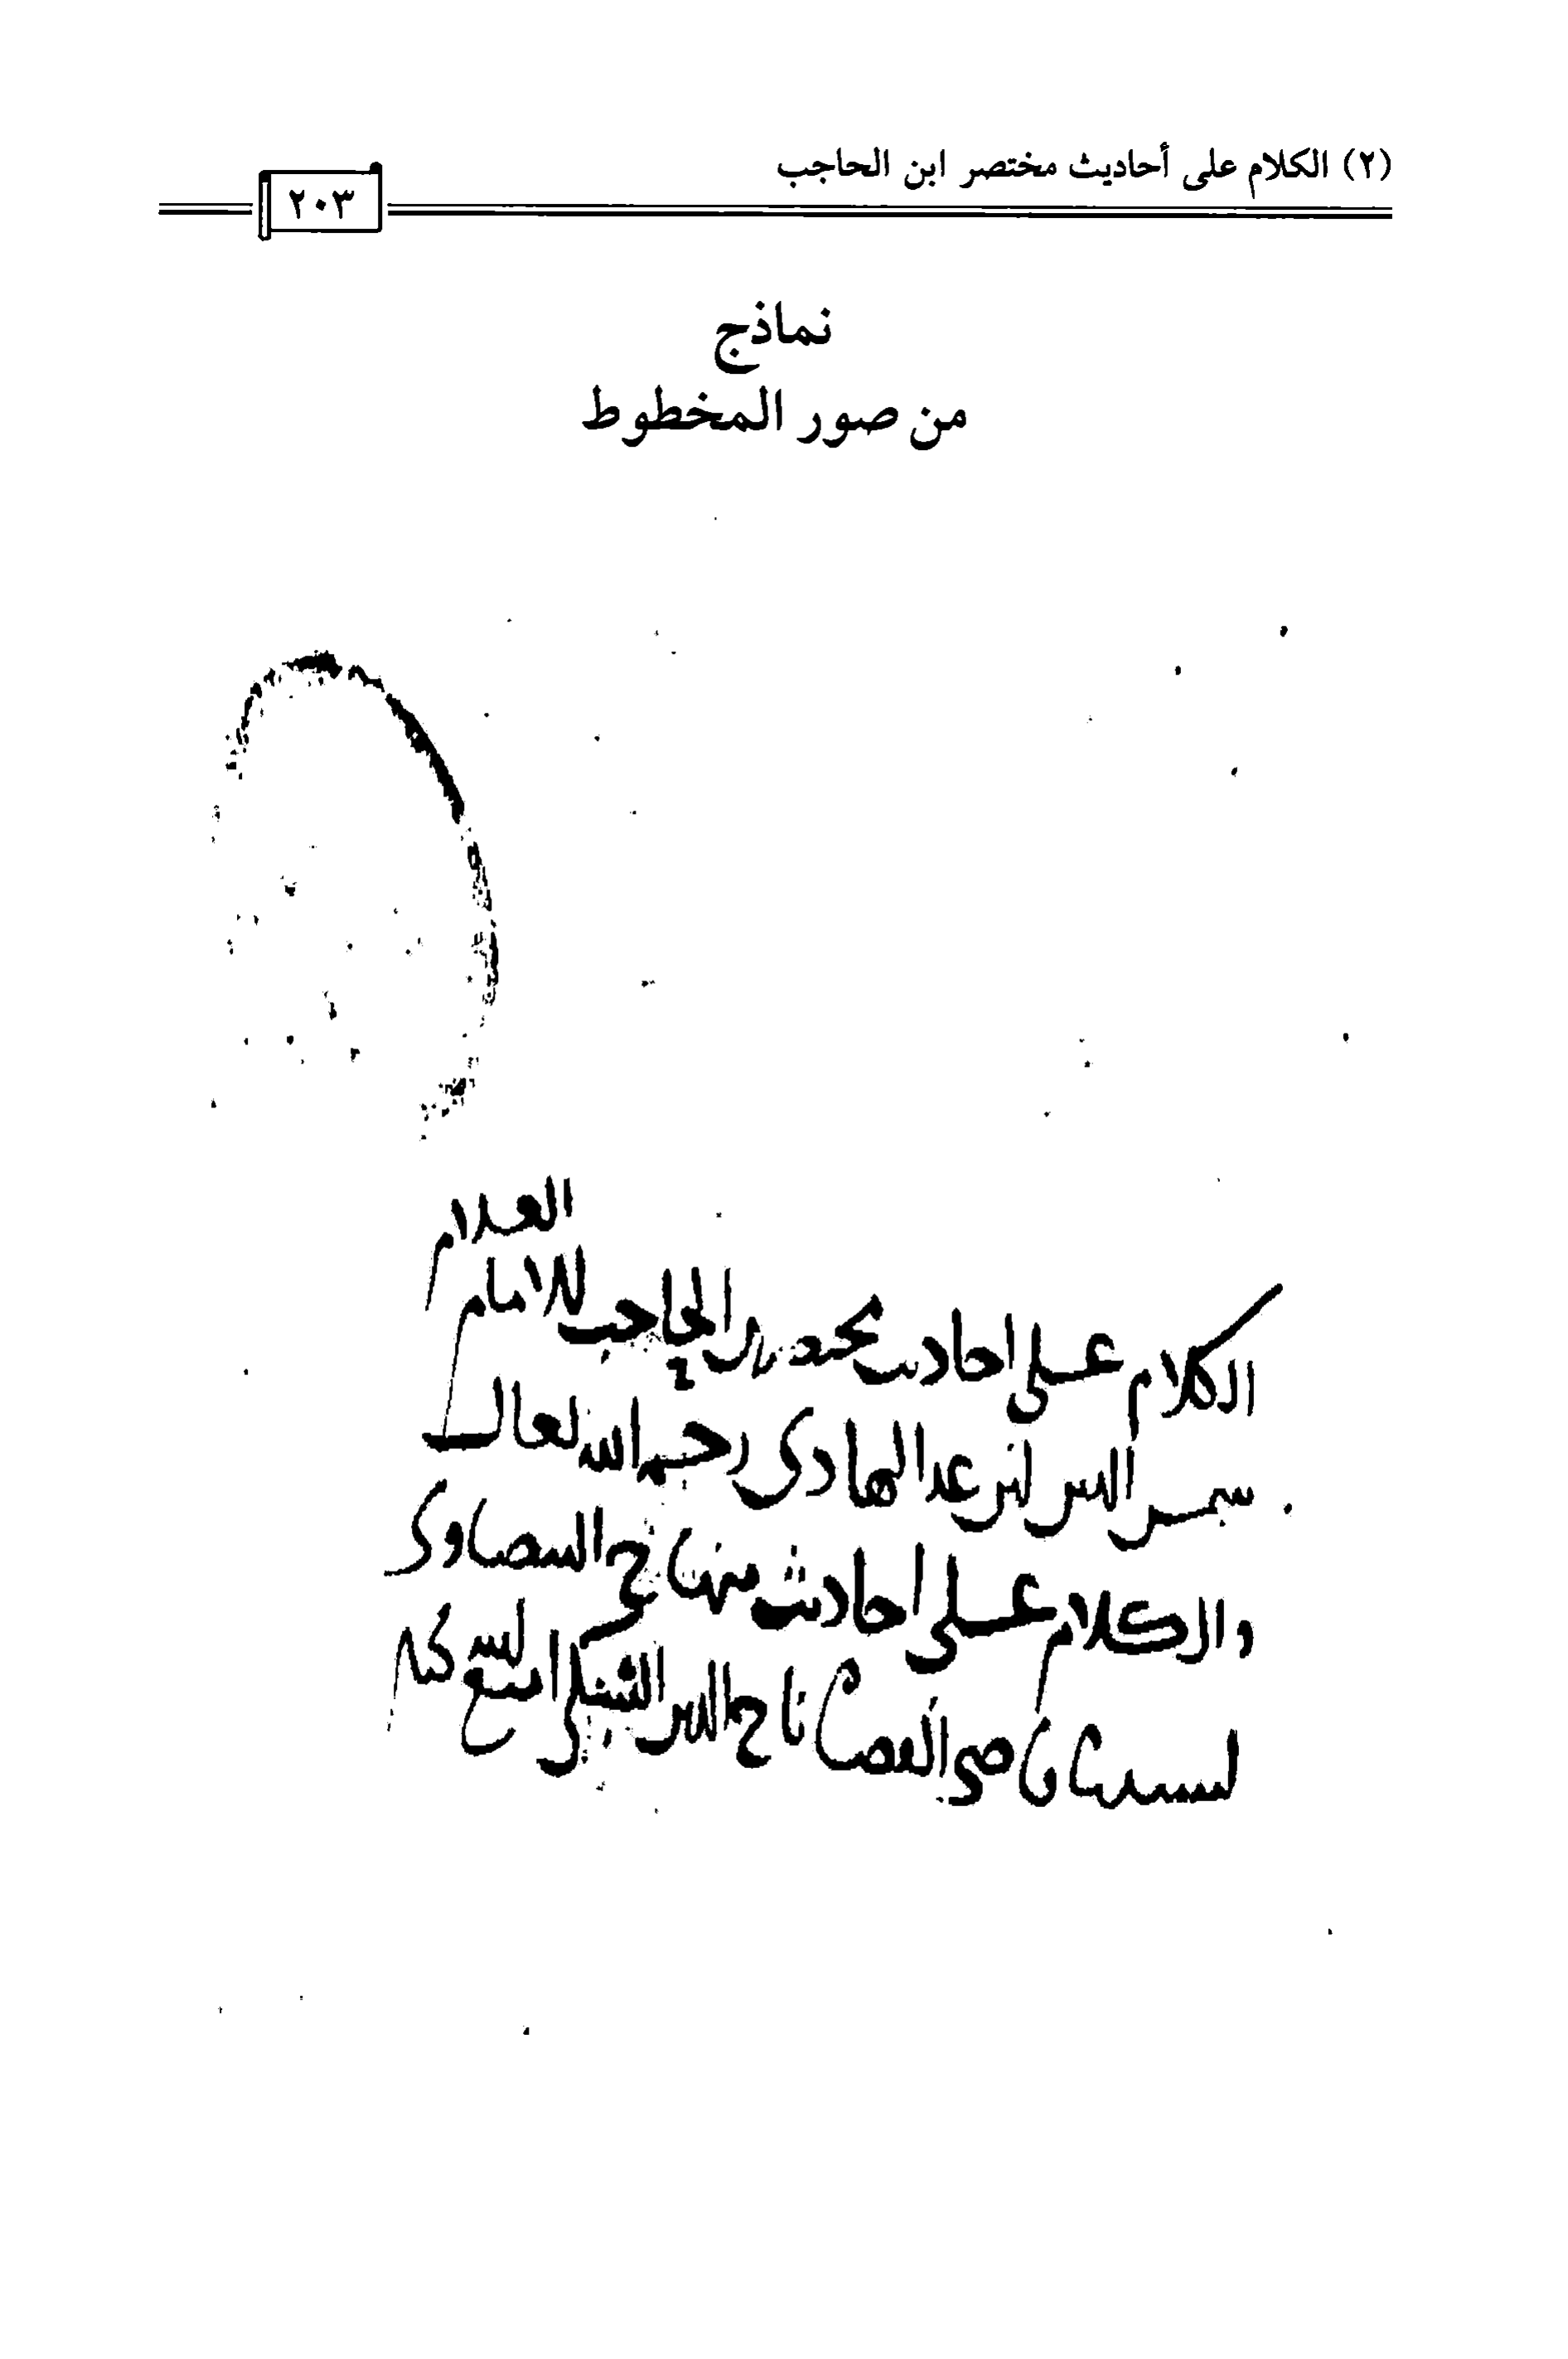 (٢) الكلام على أحاديث مختصر ابن الحاجب
٢٠٣
نماذج
من صور المخطوط
العلام
الكلام على احاديث مختصر ابن الحاجب للامام
شمس الدين ابن عبد الهادي رحمه الله تعالى
والكلام على احاديث منهاج البيضاوي
لسيدنا قاضي القضاة تاج الدين السبكي